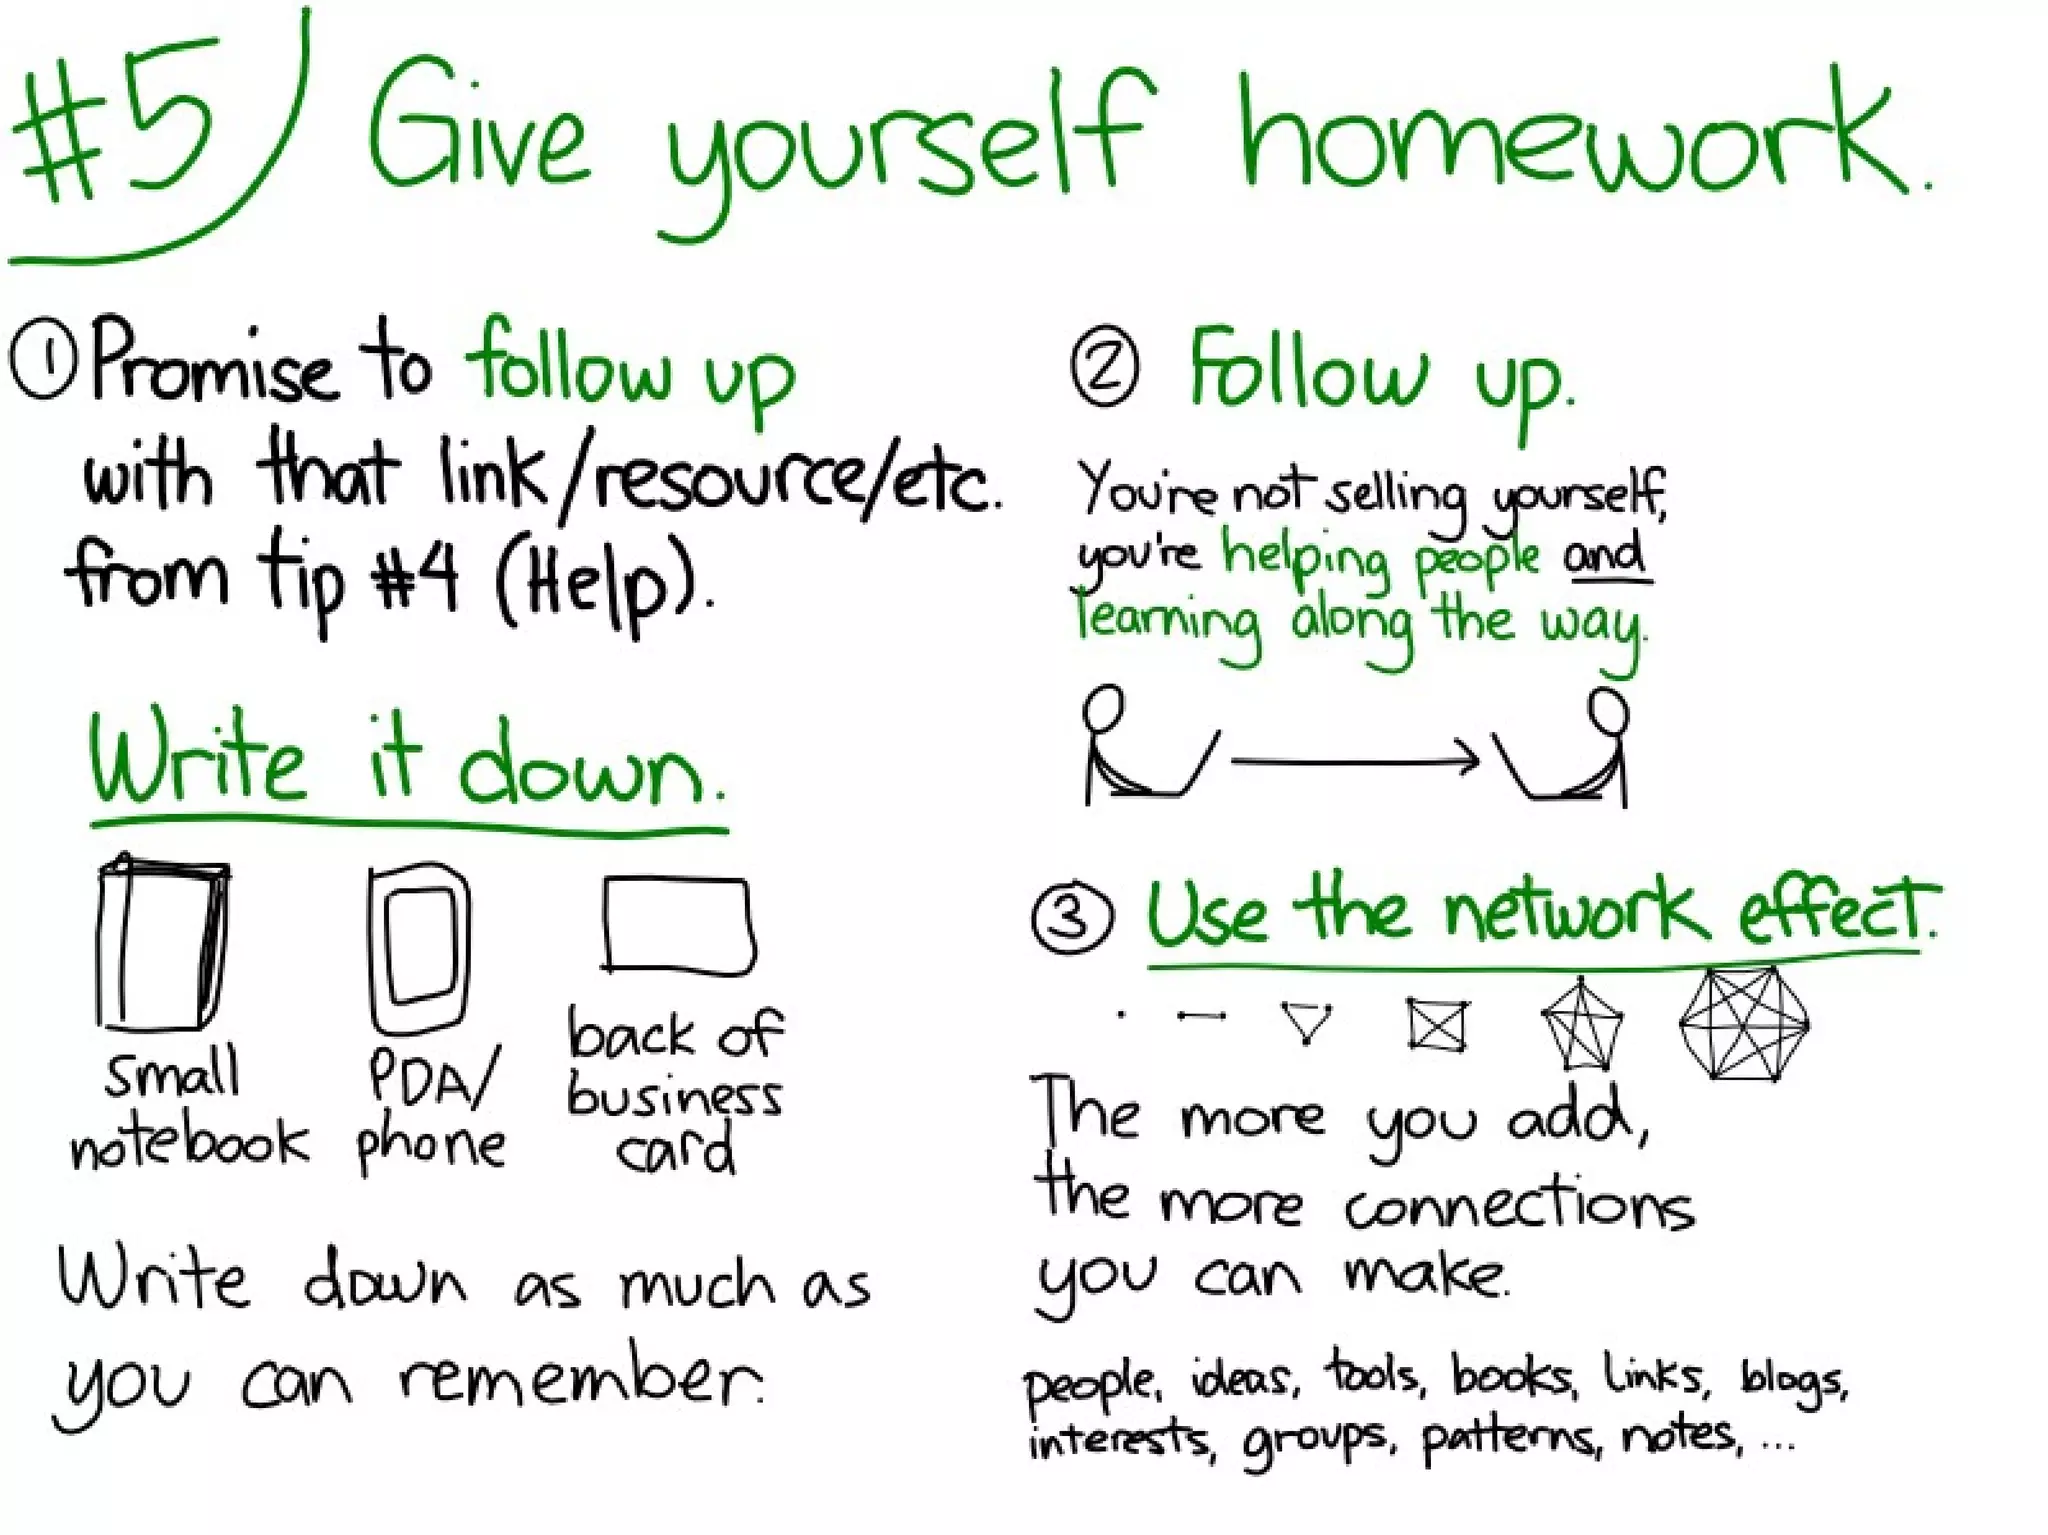 #5 Give yourself homework.
① Promise to follow up
with that link/resource/etc.
from tip #4 (Help).
Write it down.
small
notebook
PDA/
phone
back of
business
card
Write down as much as
you can remember.
② Follow up.
You're not selling yourself,
you're helping people and
learning along the way.
③ Use the network effect.
The more you add,
the more connections
you can make.
people, ideas, tools, books, links, blogs,
interests, groups, patterns, notes, ...